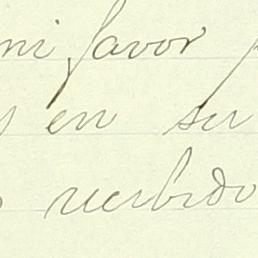 mi favor
en su
recibido